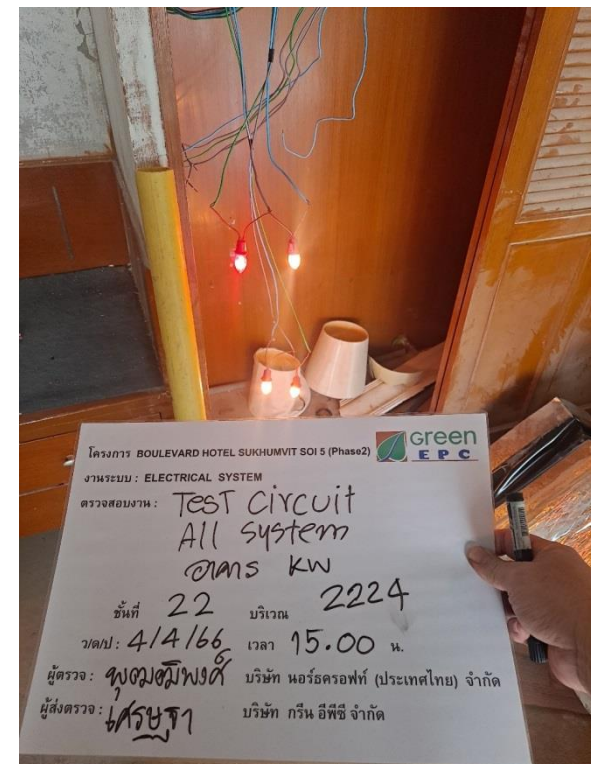 โครงการ BOULEVARD HOTEL SUKHUMVIT SOI 5 (Phase2) Green EPC
งานระบบ : ELECTRICAL SYSTEM
ตรวจสอบงาน : TEST Circuit
All system
อาคาร KW
ชั้นที่ 22 บริเวณ 2224
ว/ด/ป : 4/4/66 เวลา 15.00 น.
ผู้ตรวจ : บริษัท นอร์ธครอฟท์ (ประเทศไทย) จำกัด
ผู้ส่งตรวจ : เศรษฐา บริษัท กรีน อีพีซี จำกัด